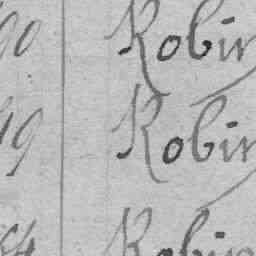 00 Robin
19 Robin
54 Robin